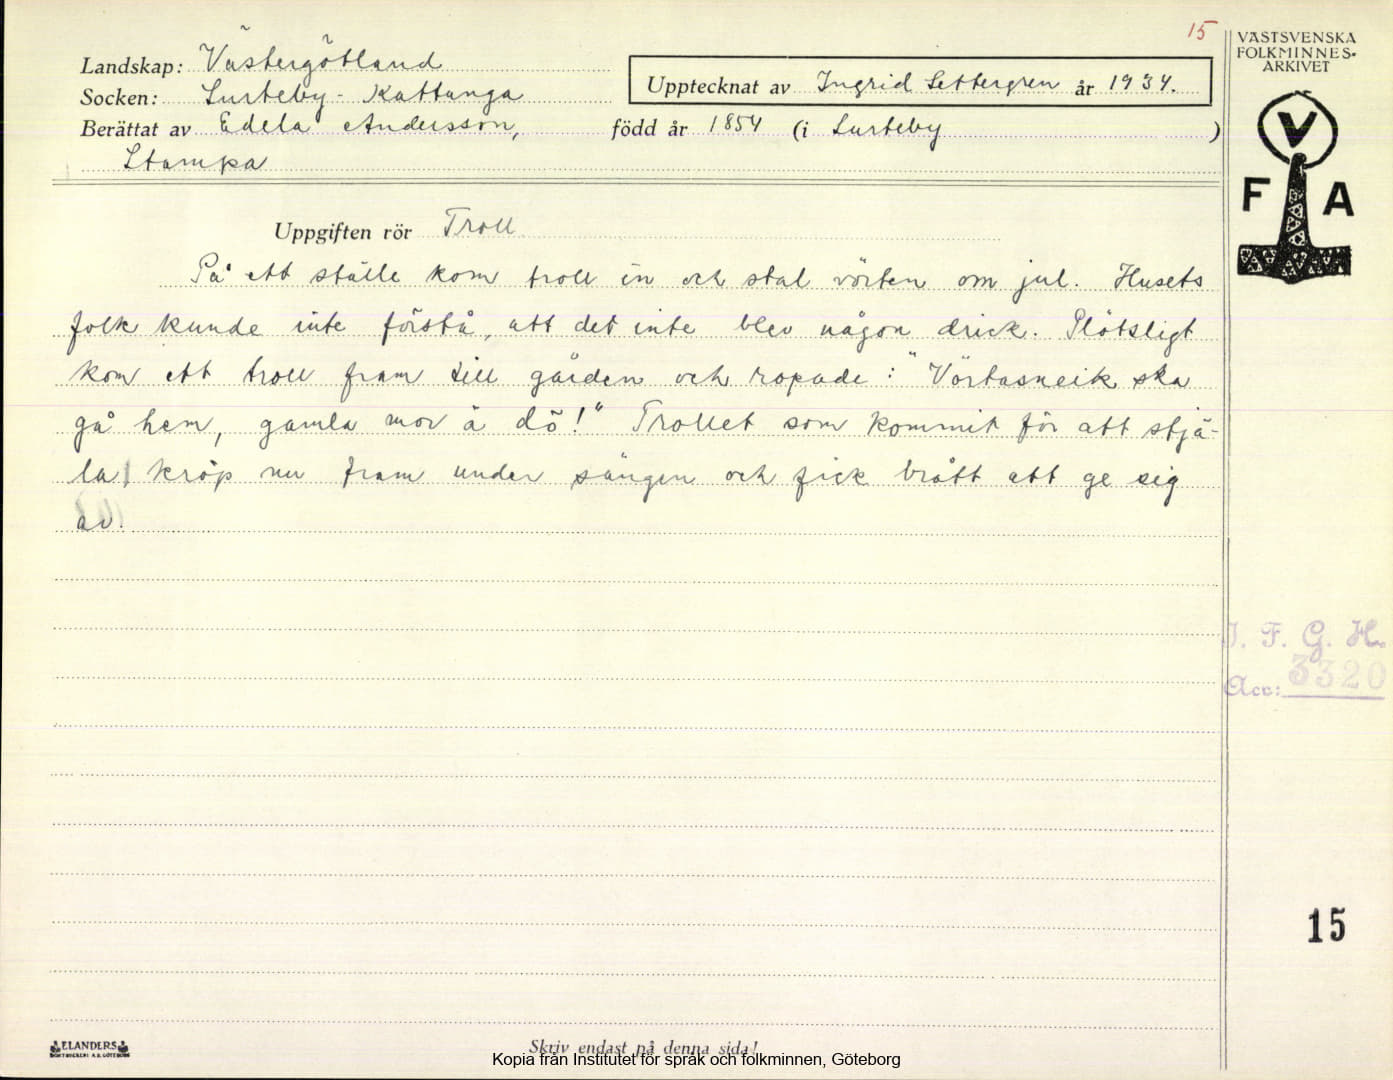 15
VÄSTSVENSKA
FOLKMINNES-
ARKIVET
Landskap: Västergötland
Socken: Surteby-Kattunga
Upptecknat av Ingrid Settergren år 1934.
Berättat av Edela Andersson, född år 1854 (i Surteby )
Stampa
V
F A
Uppgiften rör Troll
På ett ställe kom troll in och stal vörten om jul. Husets
folk kunde inte förstå, att det inte blev någon drick. Plötsligt
kom ett troll fram till gården och ropade: "Vörtasneik ska
gå hem, gamla mor ä dö!" Trollet som kommit för att stjä-
la kröp nu fram under sängen och fick brått att ge sig
av.
I. F. G. H.
Acc: 3320
15
ELANDERS
BOKTRYCKERI A.B. GÖTEBORG
Skriv endast på denna sida!
Kopia från Institutet för språk och folkminnen, Göteborg